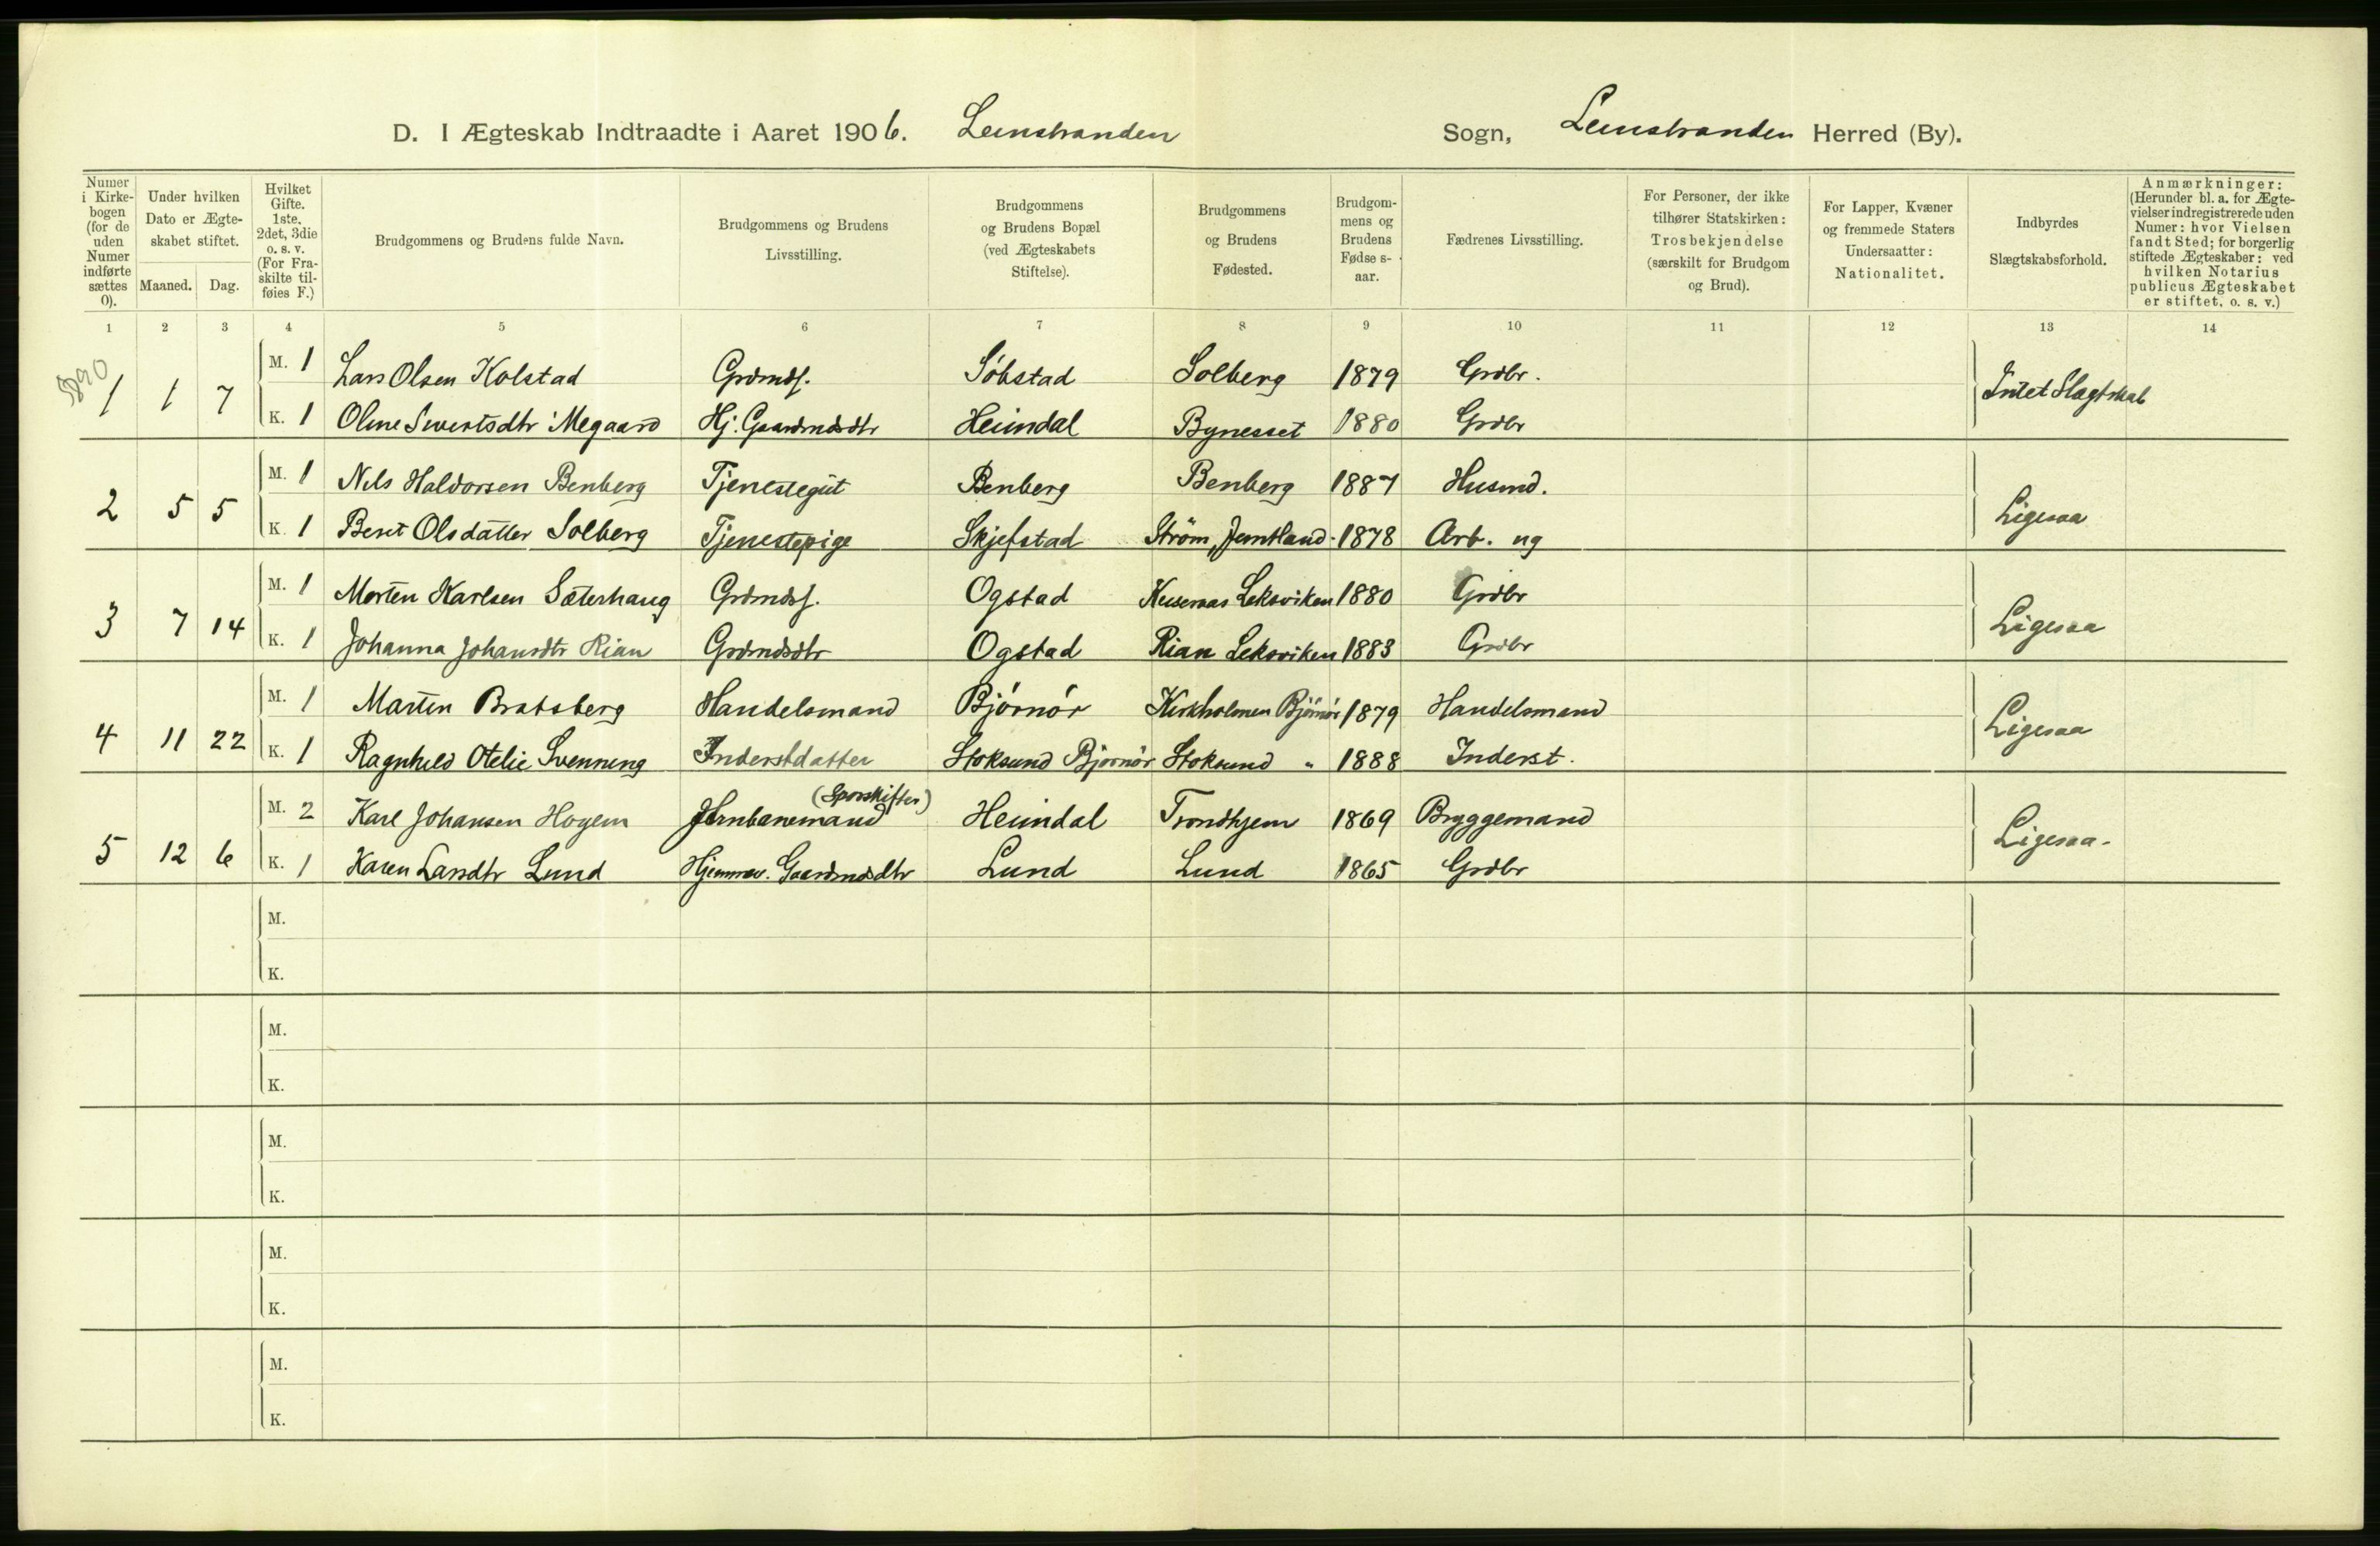 D. I Ægteskab Indtraadte i Aaret 1906. Leinstranden Sogn, Leinstranden Herred (By).
Numer i Kirke-bogen (for de uden Numer indførte sættes 0).
Under hvilken Dato er Ægte-skabet stiftet.
Maaned. Dag.
Hvilket Gifte. 1ste, 2det, 3die o. s. v. (For Fra-skilte til-føies F.)
Brudgommens og Brudens fulde Navn.
Brudgommens og Brudens Livsstilling.
Brudgommens og Brudens Bopæl (ved Ægteskabets Stiftelse).
Brudgommens og Brudens Fødested.
Brudgom-mens og Brudens Fødse s-aar.
Fædrenes Livsstilling.
For Personer, der ikke tilhører Statskirken: Trosbekjendelse (særskilt for Brudgom og Brud).
For Lapper, Kvæner og fremmede Staters Undersaatter: Nationalitet.
Indbyrdes Slægtskabsforhold.
Anmærkninger: (Herunder bl. a. for Ægte-vielser indregistrerede uden Numer: hvor Vielsen fandt Sted; for borgerlig stiftede Ægteskaber: ved hvilken Notarius publicus Ægteskabet er stiftet, o. s. v.)
1 2 3 4 5 6 7 8 9 10 11 12 13 14
M. 1 Lars Olsen Kolstad Grdmds. Söbstad Solberg 1879 Grdbr.
1 1 7 Intet Slægtskab
K. 1 Oline Sivertsdtr Megaard Hj. Gaardmdsdtr Heimdal Bynesset 1880 Grdbr
M. 1 Nils Haldorsen Benberg Tjenestegut Benberg Benberg 1887 Husmd.
2 5 5 Ligesaa
K. 1 Beret Olsdatter Solberg Tjenestepige Skjefstad Ström, Jemtland 1878 Arb. ug
M. 1 Morten Karlsen Sæterhaug Grdmds. Ogstad Leksviken 1880 Grdbr
3 7 14 Ligesaa
K. 1 Johanna Johansdtr Rian Grdmdsdtr Ogstad Rian Leksviken 1883 Grdbr
M. 1 Martin Bratsberg Handelsmand Bjørnør Kirkholmen Bjørnør 1879 Handelsmand
4 11 22 Ligesaa
K. 1 Ragnhild Otelie Svenning Inderstdatter Stoksund Bjørnør Stoksund " 1888 Inderst.
M. 2 Karl Johansen Hogem Jernbanemand (Sporskifter) Heimdal Trondhjem 1869 Bryggemand
5 12 6 Ligesaa.
K. 1 Karen Larsdtr Lund Hjemmev. Gaardmdsdtr Lund Lund 1865 Grdbr
M.
K.
M.
K.
M.
K.
M.
K.
M.
K.